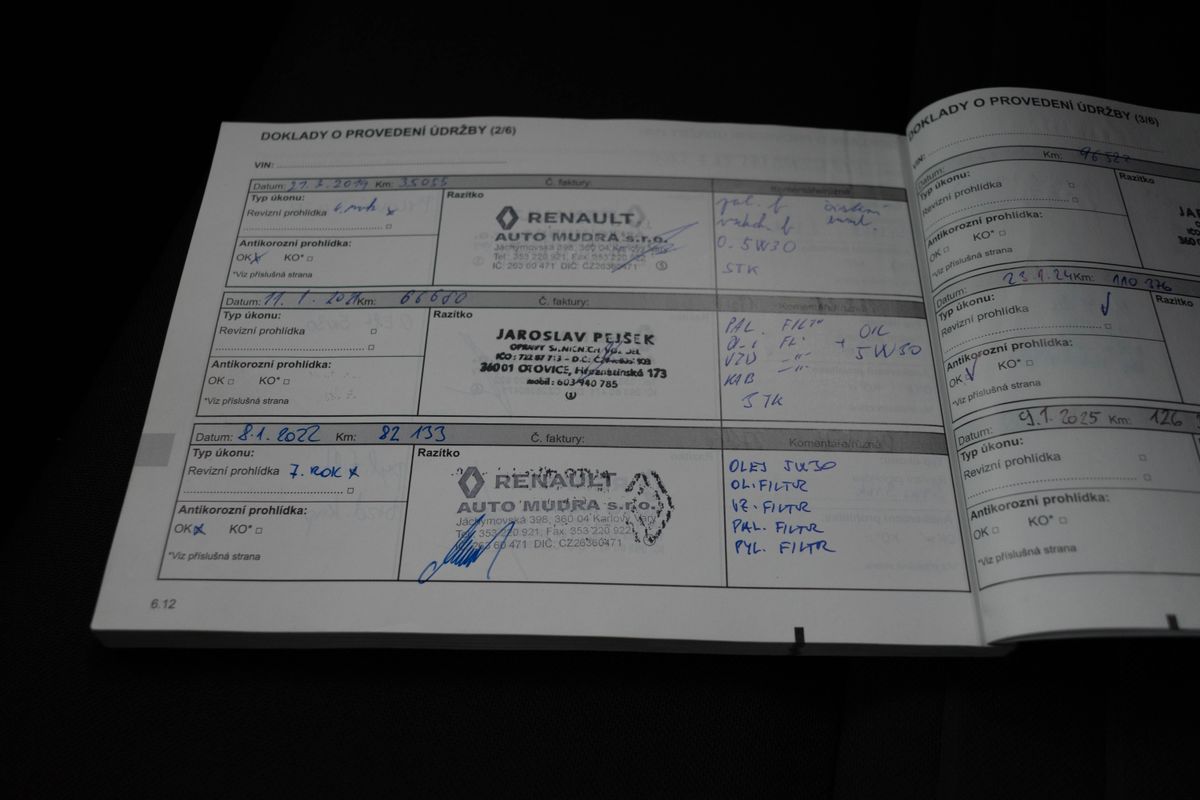 DOKLADY O PROVEDENÍ ÚDRŽBY (2/6)
VIN:
Datum: 21.2.2019 Km: 35055 Č. faktury:
Typ úkonu:
Revizní prohlídka x
Razítko
Komentáře/různá
RENAULT
AUTO MUDRA s.r.o.
Jáchymovská 398, 360 04 Karlovy Vary
Tel.: 353 220 921, Fax: 353 220 922
IČ: 263 60 471 DIČ: CZ26360471
pal. f
0. 5W30
STK
Antikorozní prohlídka:
OK x KO*
*Viz příslušná strana
Datum: 11. 1. 2021 Km: 66680 Č. faktury:
Typ úkonu:
Revizní prohlídka
Razítko
JAROSLAV PEJŠEK
OPRAVY SILNIČNÍCH VOZIDEL
36001 OTOVICE, Hroznětínská 173
mobil: 603 940 785
PAL. FILTR
+ OIL
5W30
KAB
STK
Antikorozní prohlídka:
OK KO*
*Viz příslušná strana
Datum: 8.1. 2022 Km: 82 133 Č. faktury:
Typ úkonu:
Revizní prohlídka 7. ROK x
Razítko
Komentáře/různá
RENAULT
AUTO MUDRA s.r.o.
Jáchymovská 398, 360 04 Karlovy Vary
Tel.: 353 220 921, Fax: 353 220 922
263 60 471 DIČ: CZ26360471
OLEJ 5W30
OL. FILTR
VZ. FILTR
PAL. FILTR
PYL. FILTR
Antikorozní prohlídka:
OK x KO*
*Viz příslušná strana
6.12
DOKLADY O PROVEDENÍ ÚDRŽBY (3/6)
VIN:
Datum: Km: 96522
Typ úkonu:
Revizní prohlídka
Razítko
Antikorozní prohlídka:
OK KO*
*Viz příslušná strana
Datum: 23 1.24 Km: 110 376
Typ úkonu:
Revizní prohlídka
Razítko
Antikorozní prohlídka:
OK KO*
*Viz příslušná strana
Datum: 9.1.2025 Km: 126
Typ úkonu:
Revizní prohlídka
Antikorozní prohlídka:
OK KO*
*Viz příslušná strana